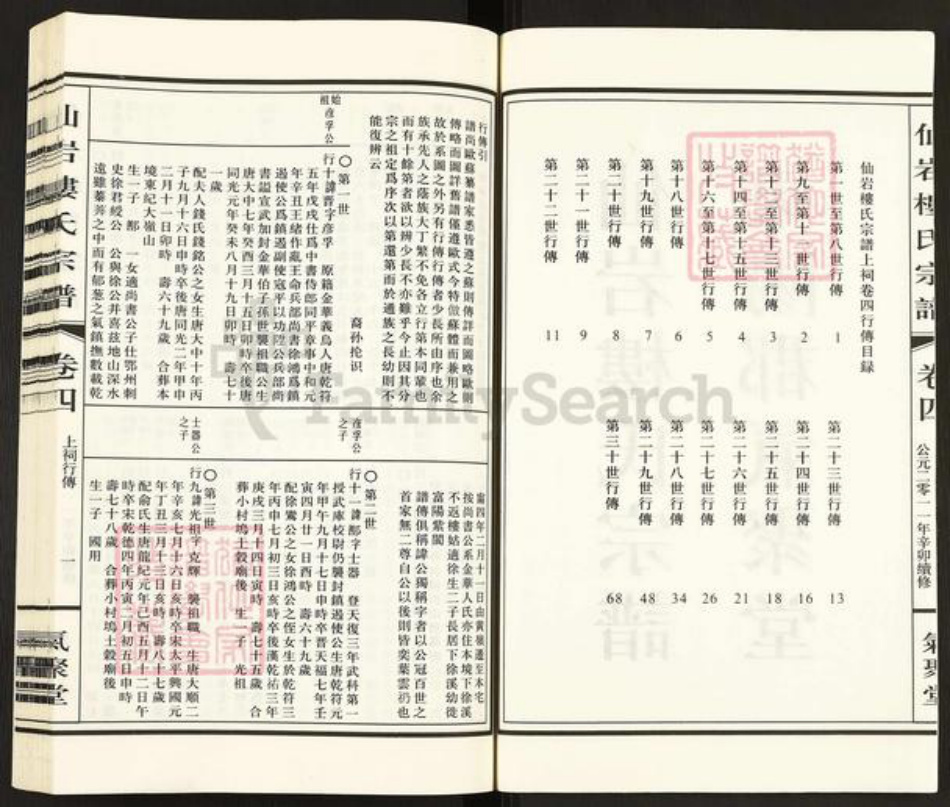 仙岩樓氏宗譜
卷四
公元二零一一年辛卯續修
氣聚堂
仙岩樓氏宗譜上祠卷四行傳目錄
第一世至第八世行傳 1
第九至第十一世行傳 2
第十二至第十三世行傳 3
第十四至第十五世行傳 4
第十六至第十七世行傳 5
第十八世行傳 6
第十九世行傳 7
第二十世行傳 8
第二十一世行傳 9
第二十二世行傳 11
第二十三世行傳 13
第二十四世行傳 16
第二十五世行傳 18
第二十六世行傳 21
第二十七世行傳 26
第二十八世行傳 34
第二十九世行傳 48
第三十世行傳 68
行傳引
譜尚歐蘇纂譜家悉皆遵之蘇則傳詳而圖略歐則
傳略而圖詳舊譜僅遵歐式今特倣蘇體而兼用之
故於系圖之外另有行傳行傳者少長所由序也余
族承先人之蔭族大丁繁不免各立行第本同輩也
而有十餘第者欲以辨少長不亦難乎今止因其分
宗之祖定爲序次以第還第而於通族之長幼則不
能復辨云
裔孫抡识
〇第一世
始祖彦孚公
行十諱晋字彦孚 原籍金華義烏人唐乾符
五年戊戌仕爲中書侍郎同平章事中和元
年辛丑王緒作亂王命兵部尚書徐鴻爲鎮
遏使公爲鎮遏副使寇平以功陞公兵部尚
書諡宣武加封金華伯子孫世襲祖職公生
唐大中七年癸酉三月十五日卯時卒後唐
同光元年癸未八月十九日卯時 壽七十
一歲
配夫人錢氏錢銘公之女生唐大中十年丙
子九月十六日申時卒後唐同光二年甲申
二月十一日卯時 壽六十九歲 合葬本
境東紀大嶺山
生一子 鄅 一女適尚書公子仕鄂州刺
史徐君綬公 公與徐公并喜茲地山深水
遠雖蓁莠之中而有郁葱之氣鎮撫數載乾
寧四年二月十一日由黄嶺遷至本宅
按尚書公系金華人氏亦住本境下徐溪
不返樓姑適徐生二子長居下徐溪幼從
富陽紫閬
譜傳俱稱諱公獨稱字者以公冠百世之
首家無二尊自公以後則皆奕葉雲礽也
〇第二世
彦孚公之子
行十一諱鄅字士器 登天復三年武科第一
授武庫校尉仍襲封鎮遏使公生唐乾符元
年甲午九月十七日申時卒晋天福七年壬
寅四月廿一日酉時 壽六十九歲
配徐鸞公之女徐鴻公之侄女生於乾符三
年丙申七月初三日亥時卒後漢乾祐三年
庚戌三月十四日寅時 壽七十五歲 合
葬小村塢土穀廟後 生一子 光祖
〇第三世
士器公之子
行九諱光祖字克輝 襲祖職 生唐大順二
年辛亥七月十六日亥時卒宋太平興國元
年丁丑三月十三日亥時 壽八十七歲
配俞氏生唐龍紀元年己酉五月十二日午
時卒宋乾德四年丙寅二月初五日申時
壽七十八歲 合葬小村塢土穀廟後
生一子 國用
仙岩樓氏宗譜
卷四
上祠行傳
一
氣聚堂
FamilySearch